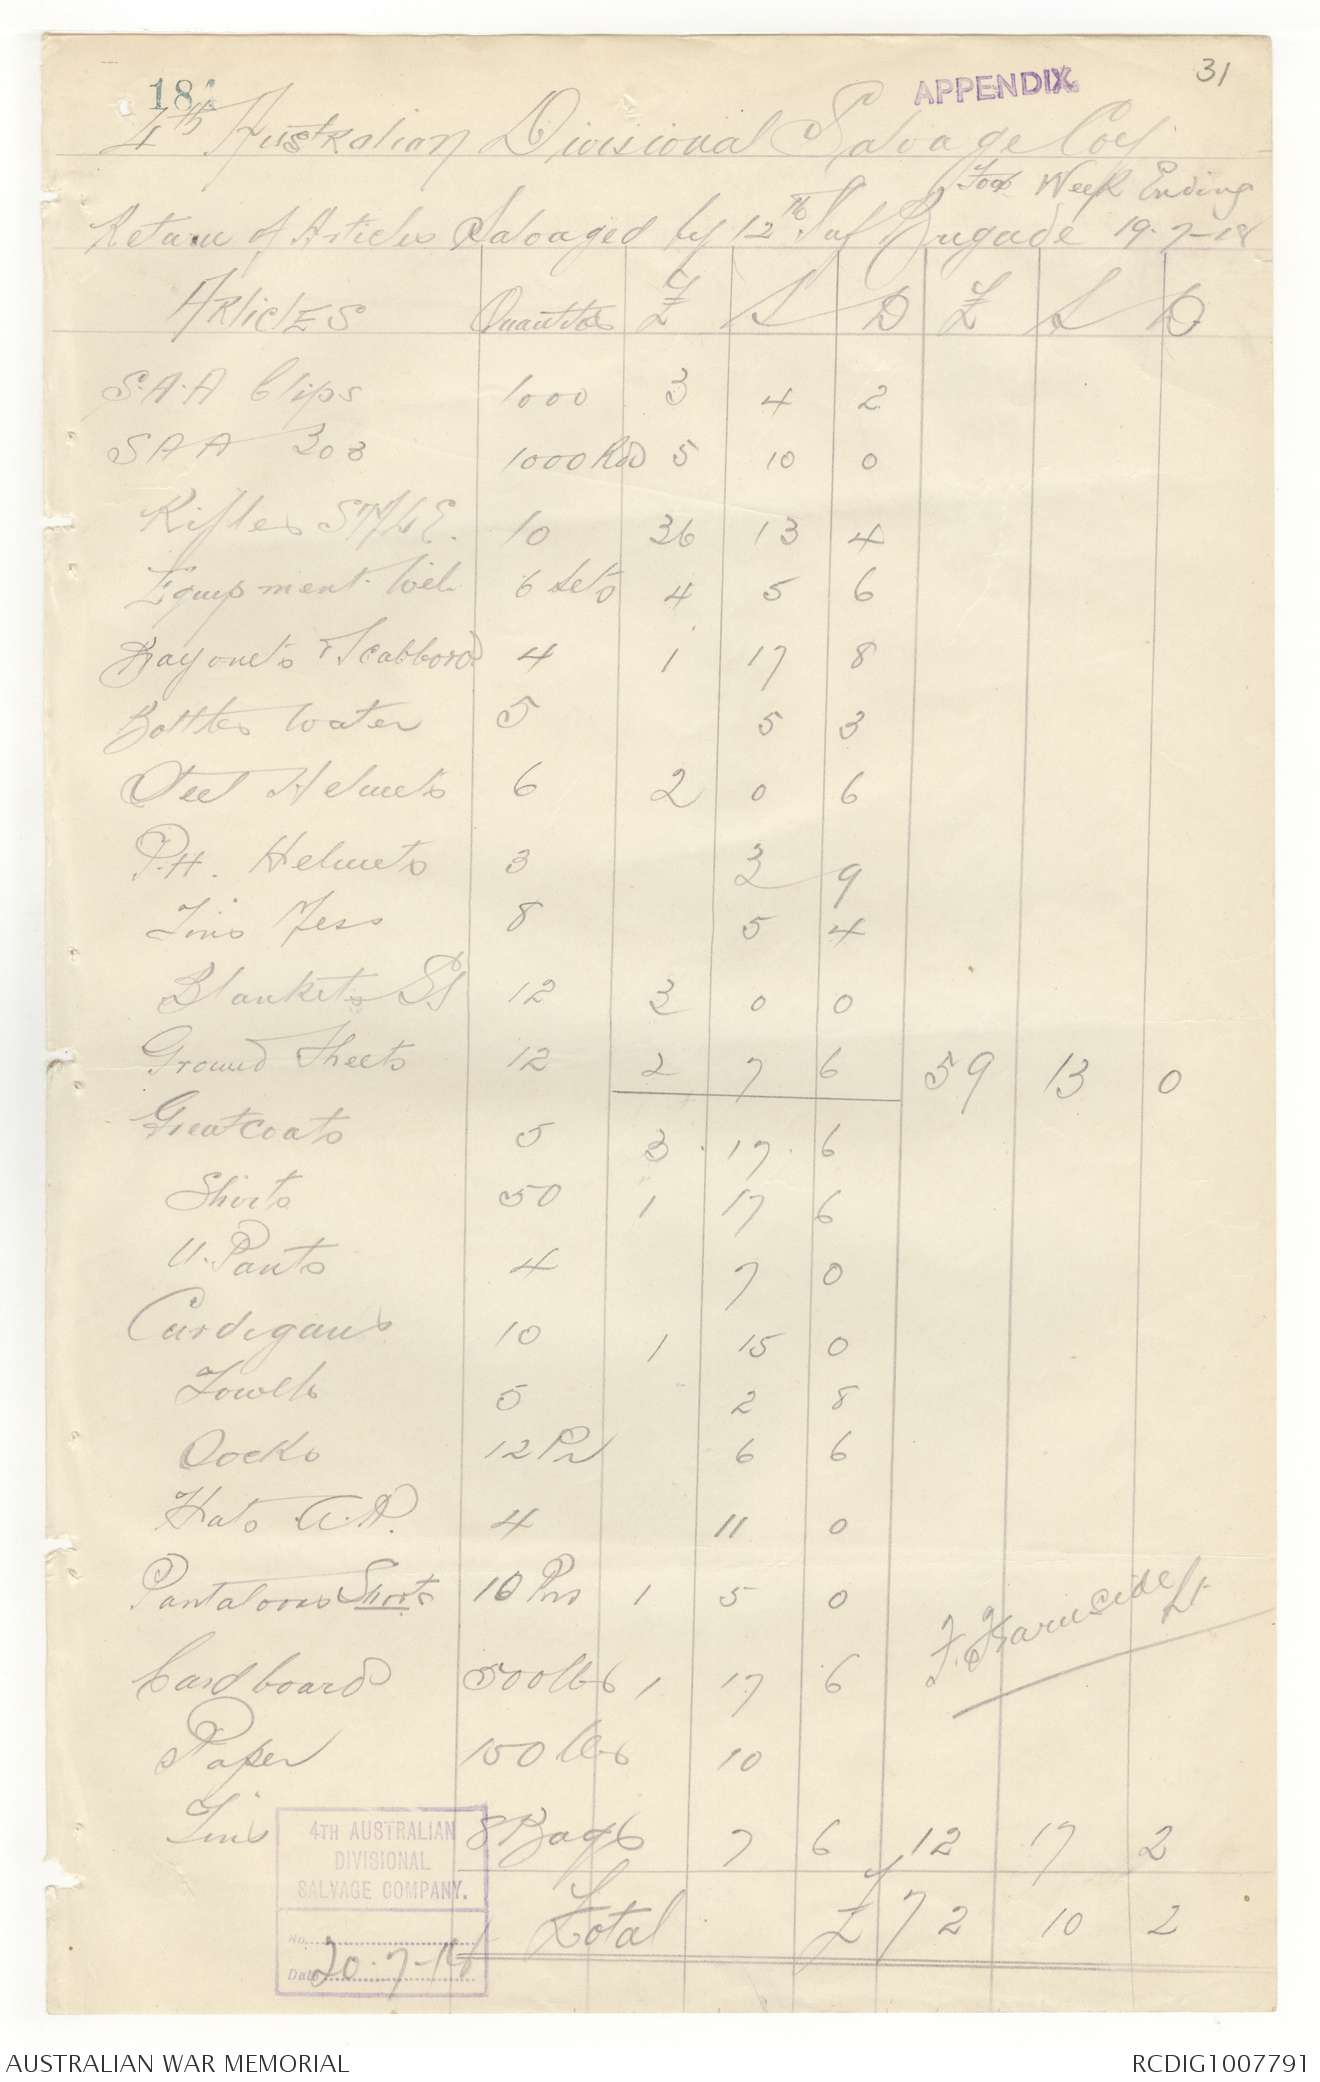 184
APPENDIX.
31
4th Australian Divisional Salvage Coy
For Week Ending
Return of Articles Salvaged by 12th Inf Brigade 19-7-18
Articles Quantites £ S D £ S D
S.A.A Clips 1000 3 4 2
SAA 303 1000 Rds 5 10 0
Rifles SMLE. 10 36 13 4
Equipment Web 6 Sets 4 5 6
Bayonets & Scabbord 4 1 17 8
Bottles Water 5 5 3
Steel Helmets 6 2 0 6
P.H. Helmets 3 3 9
Tins Mess 8 5 4
Blankets SS 12 3 0 0
Ground Sheets 12 2 7 6 59 13 0
Greatcoats 5 3 17 6
Shirts 50 1 17 6
U. Pants 4 7 0
Cardigans 10 1 15 0
Towels 5 2 8
Socks 12 Prs 6 6
Hats 4 11 0
Pantaloons Short 10 Prs 1 5 0
Cardboard 500 lbs 1 17 6
F. Lt
Paper 150 lbs 10
Tins 8 Bags 7 6 12 17 2
Total £ 72 10 2
4TH AUSTRALIAN
DIVISIONAL
SALVAGE COMPANY.
No.
Date 20-7-18
AUSTRALIAN WAR MEMORIAL
RCDIG1007791